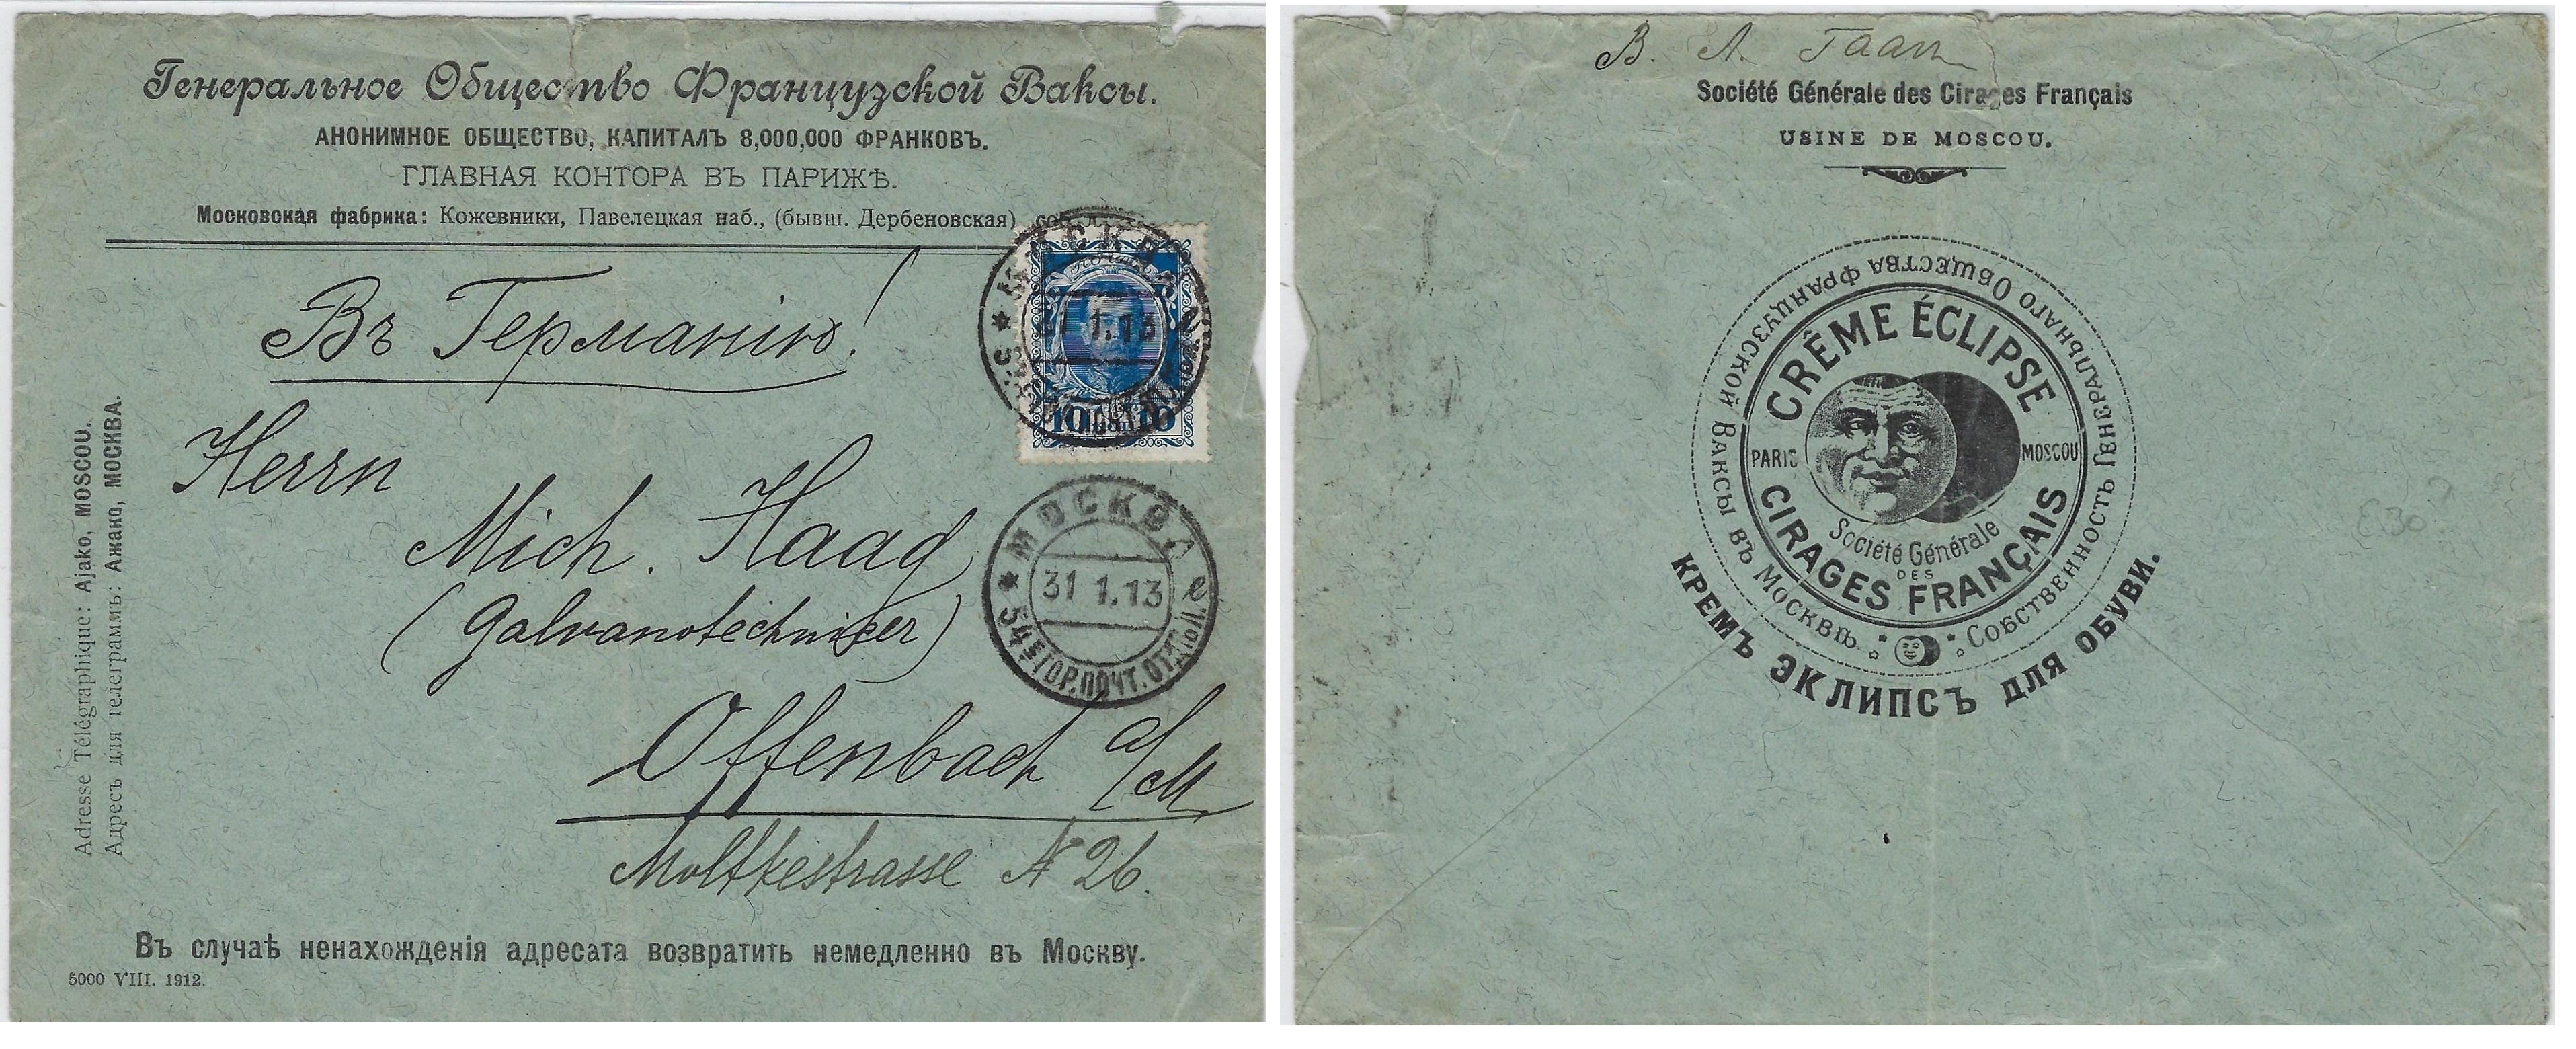 Генеральное Общество Французской Ваксы.
АНОНИМНОЕ ОБЩЕСТВО, КАПИТАЛЪ 8,000,000 ФРАНКОВЪ.
ГЛАВНАЯ КОНТОРА ВЪ ПАРИЖѢ.
Московская фабрика: Кожевники, Павелецкая наб., (бывш. Дербеновская)
МОСКВА
31 1.13
10 10
Въ Германію!
Herrn
Mich. Haag
(Galvanotechniker)
Offenbach a/M
Moltkestrasse N 26.
МОСКВА е
31 1.13
54 ГОР. ПОЧТ. ОТД.
Adresse Télégraphique: Ajako, MOSCOU.
Адресъ для телеграммъ: Ажако, МОСКВА.
Въ случаѣ ненахожденія адресата возвратить немедленно въ Москву.
5000 VIII. 1912.
В. А. Гаан
Société Générale des Cirages Français
USINE DE MOSCOU.
Собственность Генеральнаго Общества Французской Ваксы въ Москвѣ
CRÊME ÉCLIPSE
PARIS MOSCOU
Société Générale
DES
CIRAGES FRANÇAIS
КРЕМЪ ЭКЛИПСЪ ДЛЯ ОБУВИ.